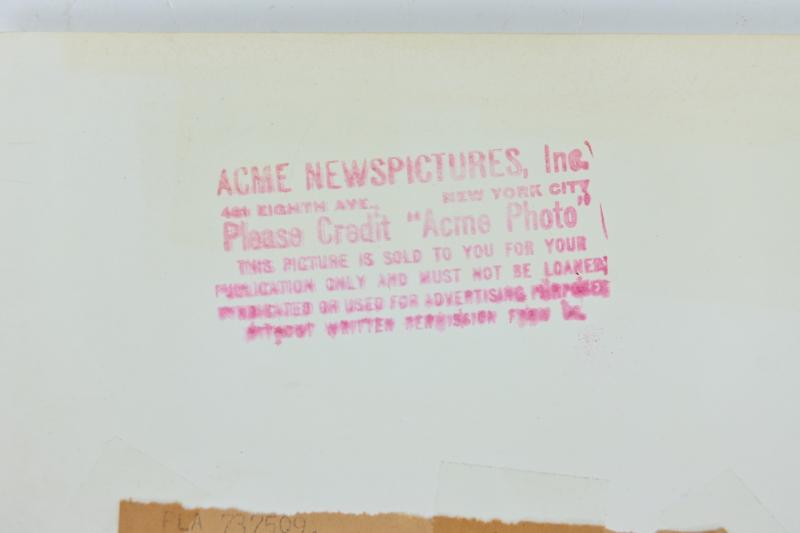 ACME NEWSPICTURES, Inc.
461 EIGHTH AVE., NEW YORK CITY
Please Credit "Acme Photo"
THIS PICTURE IS SOLD TO YOU FOR YOUR
PUBLICATION ONLY AND MUST NOT BE LOANED,
SYNDICATED OR USED FOR ADVERTISING PURPOSES
WITHOUT WRITTEN PERMISSION FROM
FLA 737509